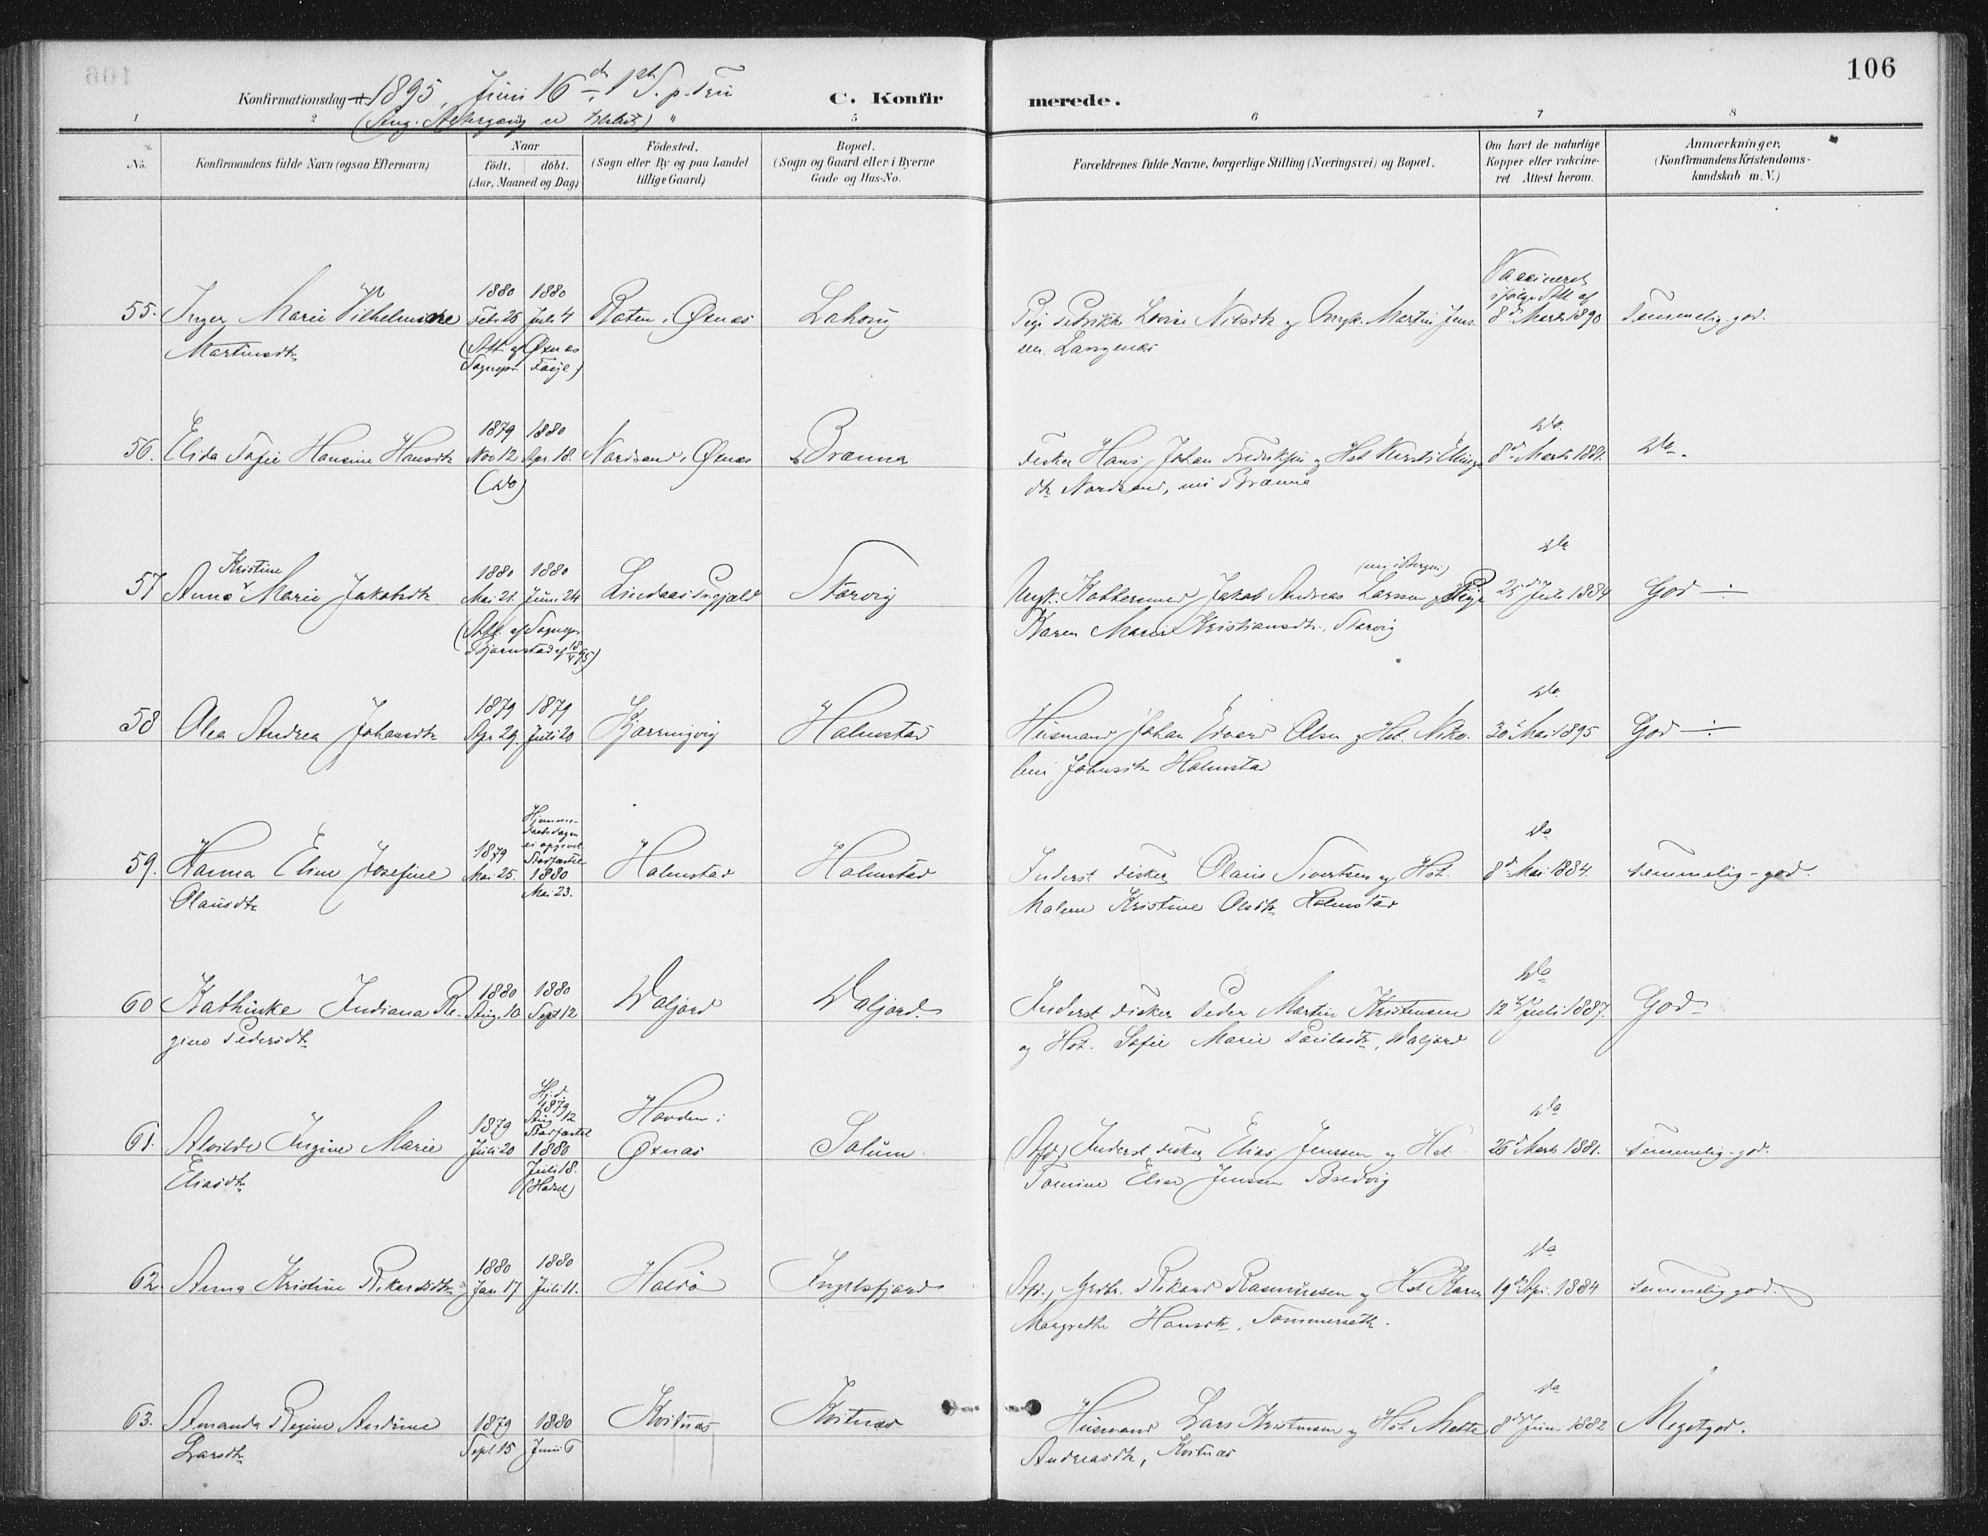 106
Konfirmationsdag d. 1895, Juni 16de, 1ste S. p. Trin
C. Konfirmerede.
1 2 5 6 7 8
No.
Konfirmandens fulde Navn (ogsaa Efternavn)
Naar
født. døbt.
(Aar, Maaned og Dag)
Fødested.
(Sogn eller By og paa Landet
tillige Gaard)
Bopæl.
(Sogn og Gaard eller i Byerne
Gade og Hus-No.
Forældrenes fulde Navne, borgerlige Stilling (Næringsvei) og Bopæl.
Om havt de naturlige
Kopper eller vakcine-
ret Attest herom.
Anmærkninger.
(Konfirmandens Kristendoms-
kundskab m. V.)
55. Inger Marie Vilhelmine
Martinsdtr
1880 Febr 25
1880 Juli 4
(Att. af Øxnæs
Sognepr.
Øxnæs
Pige Fedrikke Lovise Nilsdtr og Ungk. Martin Jens-
sen Langenes
Vaccineret
ifølge Att af
8de Marts 1890
Temmelig-god.
56. Elida Sofie Hansine Hansdtr
1879 Nov 12
1880 Apr 18.
(Do)
Nordsand, Øxnæs
Brænna
Fisker Hans Johan Fredriksen og Hst.
dtr Nordsand, nu i Brænna
Do.
8de Marts 1881.
Do.
57 Anna Kristine Marie Jakobsdtr
1880 Mai 21.
1880 Juni 24
(Att. af Sognepr.
Lindaas Prgjæld
Storvig
(nu i Bergen)
Ungk. Jakob Andreas Larssen og Pige
Karen Marie Kristiansdtr, Storvig
Do
25de Juli 1884
God
58 Olea Andrea Johansdtr
1879 Apr 29.
1879 Juli 20
Kjærringvig
Holmstad
Husmand Johan Edvard Olsen og Hst. Niko-
line Johnsdtr Holmstad
Do.
30de Mai 1895
God
59. Hanna Eline Josefine
Olausdtr
1879 Mai 25.
Hjemme-
daabsdagen
ei opgivet
Stadfæstet
1880 Mai 23.
Holmstad
Holmstad
Inderst Fisker Olaus Sivertsen og Hst.
Malene Kristine Olsdtr, Holmstad
Do
8de Mai 1884.
temmelig-god.
60 Kathinke Indiana Re-
gine Pedersdtr
1880 Aug. 10
1880 Sept 12
Valfjord
Valfjord.
Inderst Fisker Peder Martin Kristensen
og Hst. Sofie Marie Paulsdtr, Valfjord
Do
12te Juli 1887.
God
61. Alvilde Ingine Marie
Eliasdtr
1879 Juli 20
Hj. d.
1879
Aug 12
Stadfæstet
1880
Juli 18.
(Hadsel)
Hovden i
Øxnæs
Solum
Afd., Inderst Fisker Elias Jenssen og Hst.
Tomine Elise Jenssen Bredvig
Do
26de Marts 1881.
temmelig-god.
62. Anna Kristine Rikardsdtr
1880 Jan 17
1880 Juli 11.
Haldø
Ingelsfjord
Afd., Grdbr. Rikard Rasmussen og Hst. Karen
Margrethe Hansdtr, Sommersæth.
Do
19de Apr. 1884
temmelig god.
63. Amanda Regine Andrine
Larsdtr
1879 Sept 15
1880 Juni 6
Kvitnæs
Kvitnæs
Husmand Lars Kristensen og Hst. Mette
Andreasdtr, Kvitnæs
Do
8de Juni 1882
Megetgod.